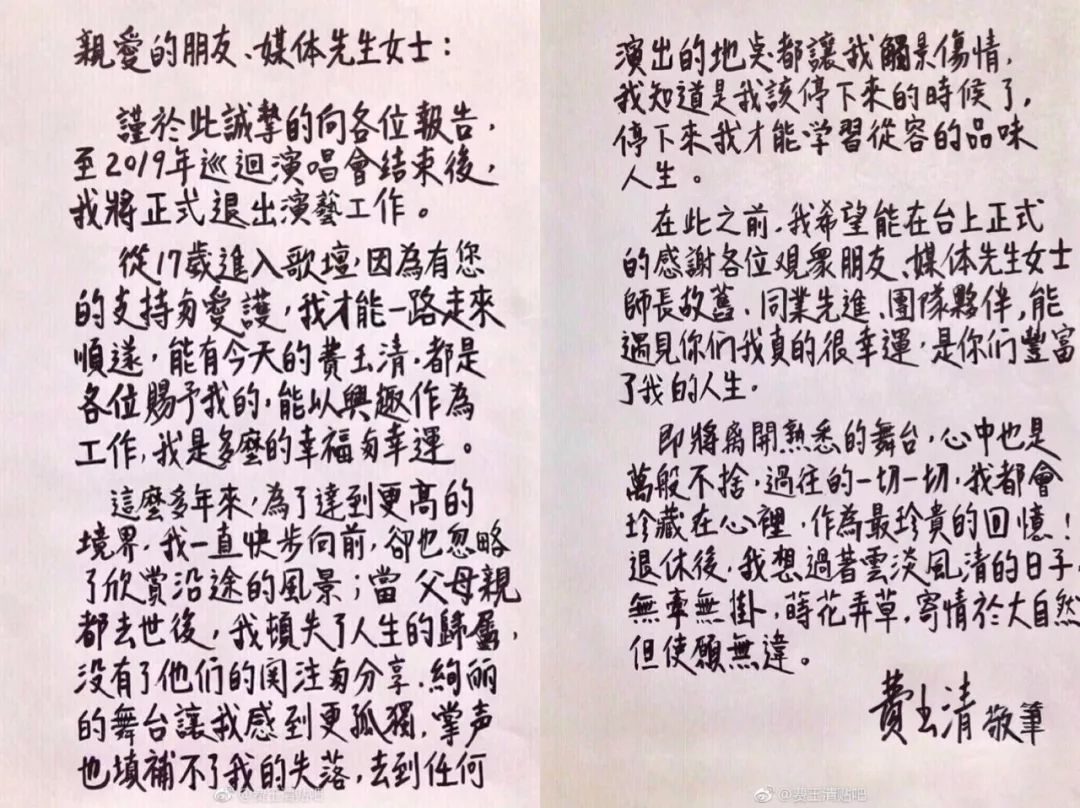 親愛的朋友、媒体先生女士：
謹於此誠摯的向各位報告，
至2019年巡迴演唱會结束後，
我將正式退出演藝工作。
從17歲進入歌壇，因為有您
的支持與愛護，我才能一路走來
順遂，能有今天的費玉清，都是
各位賜予我的，能以興趣作為
工作，我是多麼的幸福與幸運。
這麼多年來，為了達到更高的
境界，我一直快步向前，卻也忽略
了欣賞沿途的風景；當父母親
都去世後，我頓失了人生的歸屬，
没有了他们的関注與分享，絢丽
的舞台讓我感到更孤獨，掌声
也填補不了我的失落，去到任何
@费玉清贴吧
演出的地点都讓我觸景傷情，
我知道是我該停下來的時候了，
停下來我才能学習從容的品味
人生。
在此之前，我希望能在台上正式
的感謝各位观眾朋友、媒体先生女士
師長故舊、同業先進、團隊夥伴，能
遇見你们我真的很幸運，是你们豐富
了我的人生。
即將离開熟悉的舞台，心中也是
萬般不捨，過往的一切一切，我都會
珍藏在心裡，作為最珍貴的回憶！
退休後，我想過著雲淡風清的日子，
無牽無掛，蒔花弄草，寄情於大自然
但使願無違。
費玉清 敬筆
@费玉清贴吧